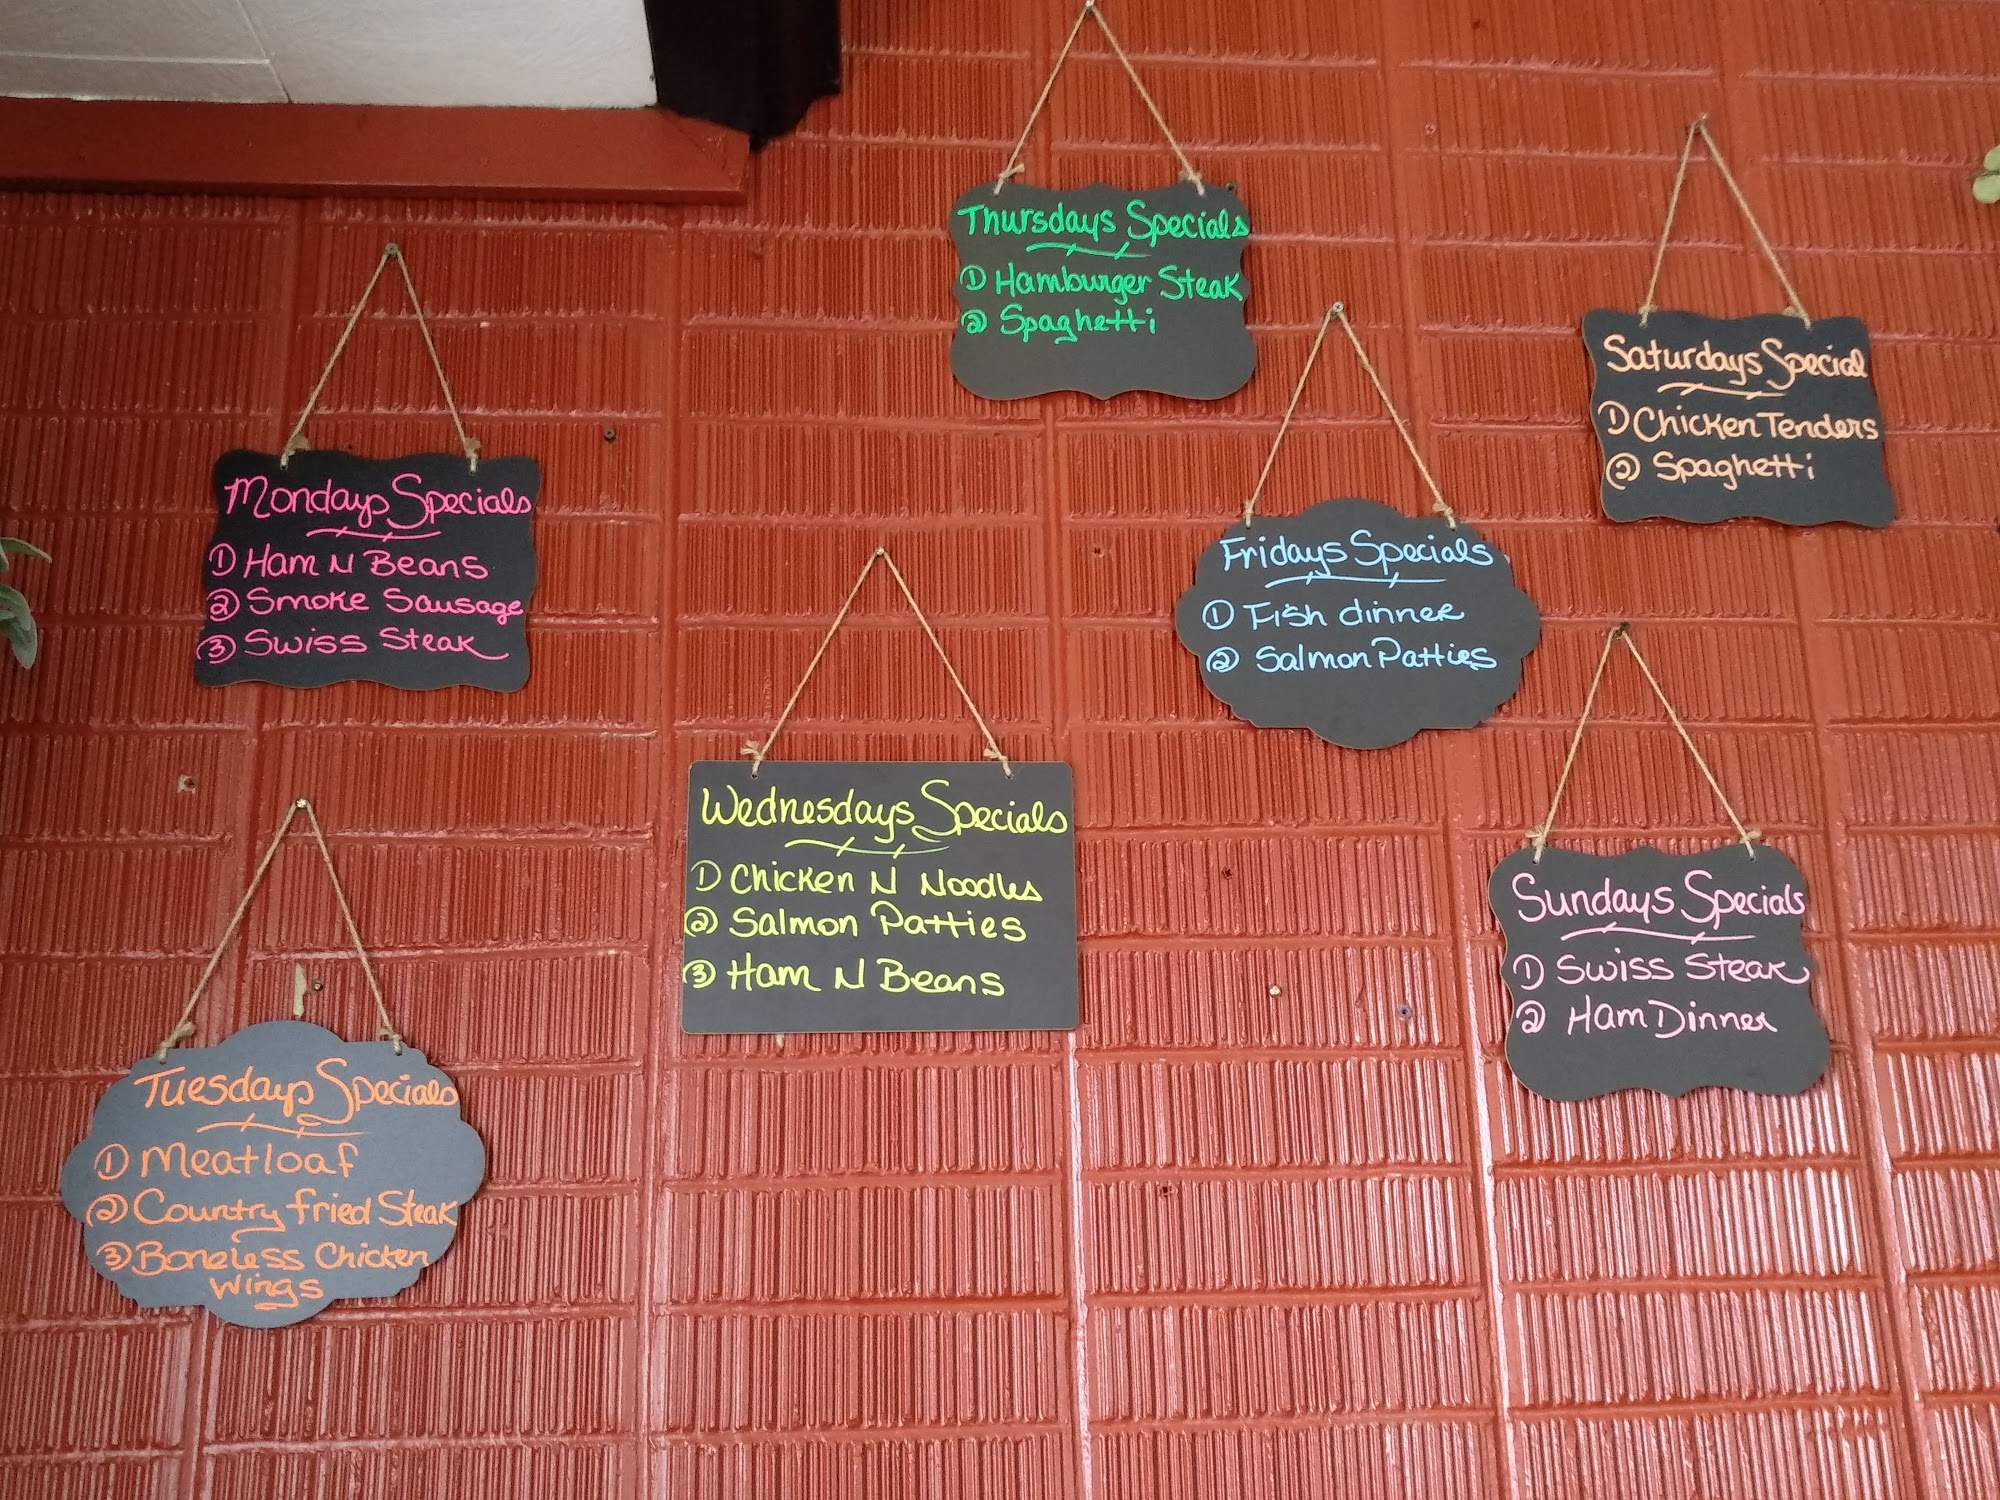 Mondays Specials
① Ham N Beans
② Smoke Sausage
③ Swiss Steak
Tuesdays Specials
① Meatloaf
② Country fried Steak
③ Boneless Chicken
Wings
Wednesdays Specials
① Chicken N Noodles
② Salmon Patties
③ Ham N Beans
Thursdays Specials
① Hamburger Steak
② Spaghetti
Fridays Specials
① Fish dinner
② Salmon Patties
Saturdays Special
① Chicken Tenders
② Spaghetti
Sundays Specials
① Swiss Steak
② Ham Dinner